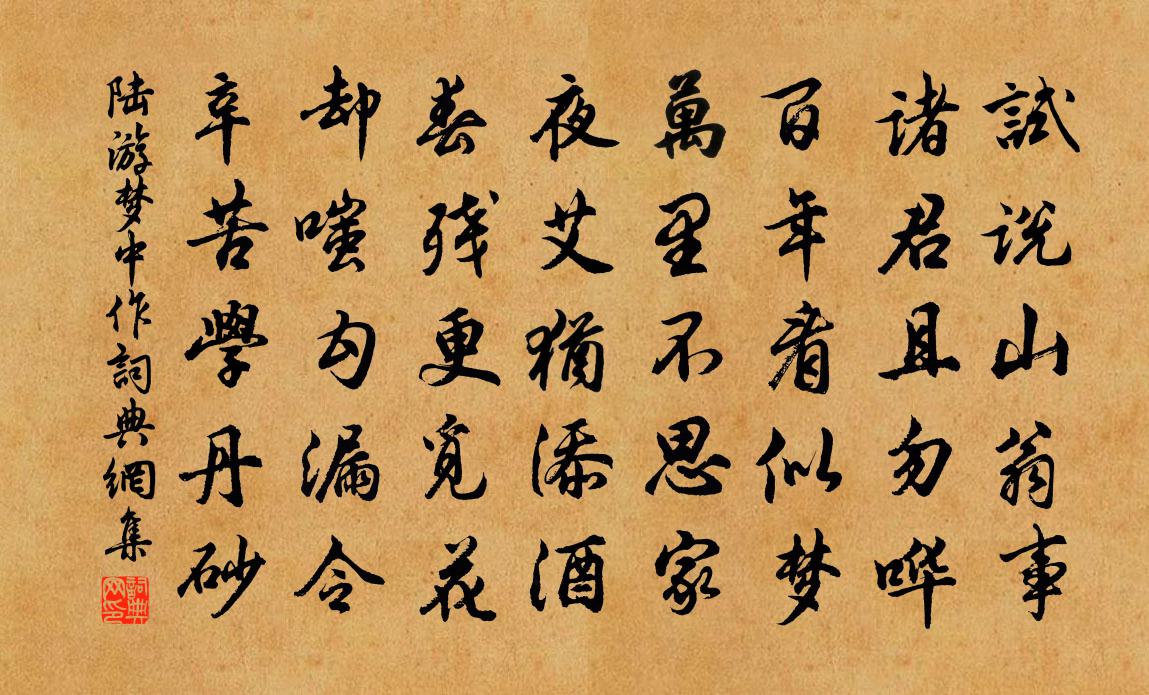 試说山翁事
诸君且勿哗
百年看似梦
萬里不思家
夜艾猶添酒
春残更觅花
却嗤勾漏令
辛苦學丹砂
陆游梦中作詞典網集
詞典网印